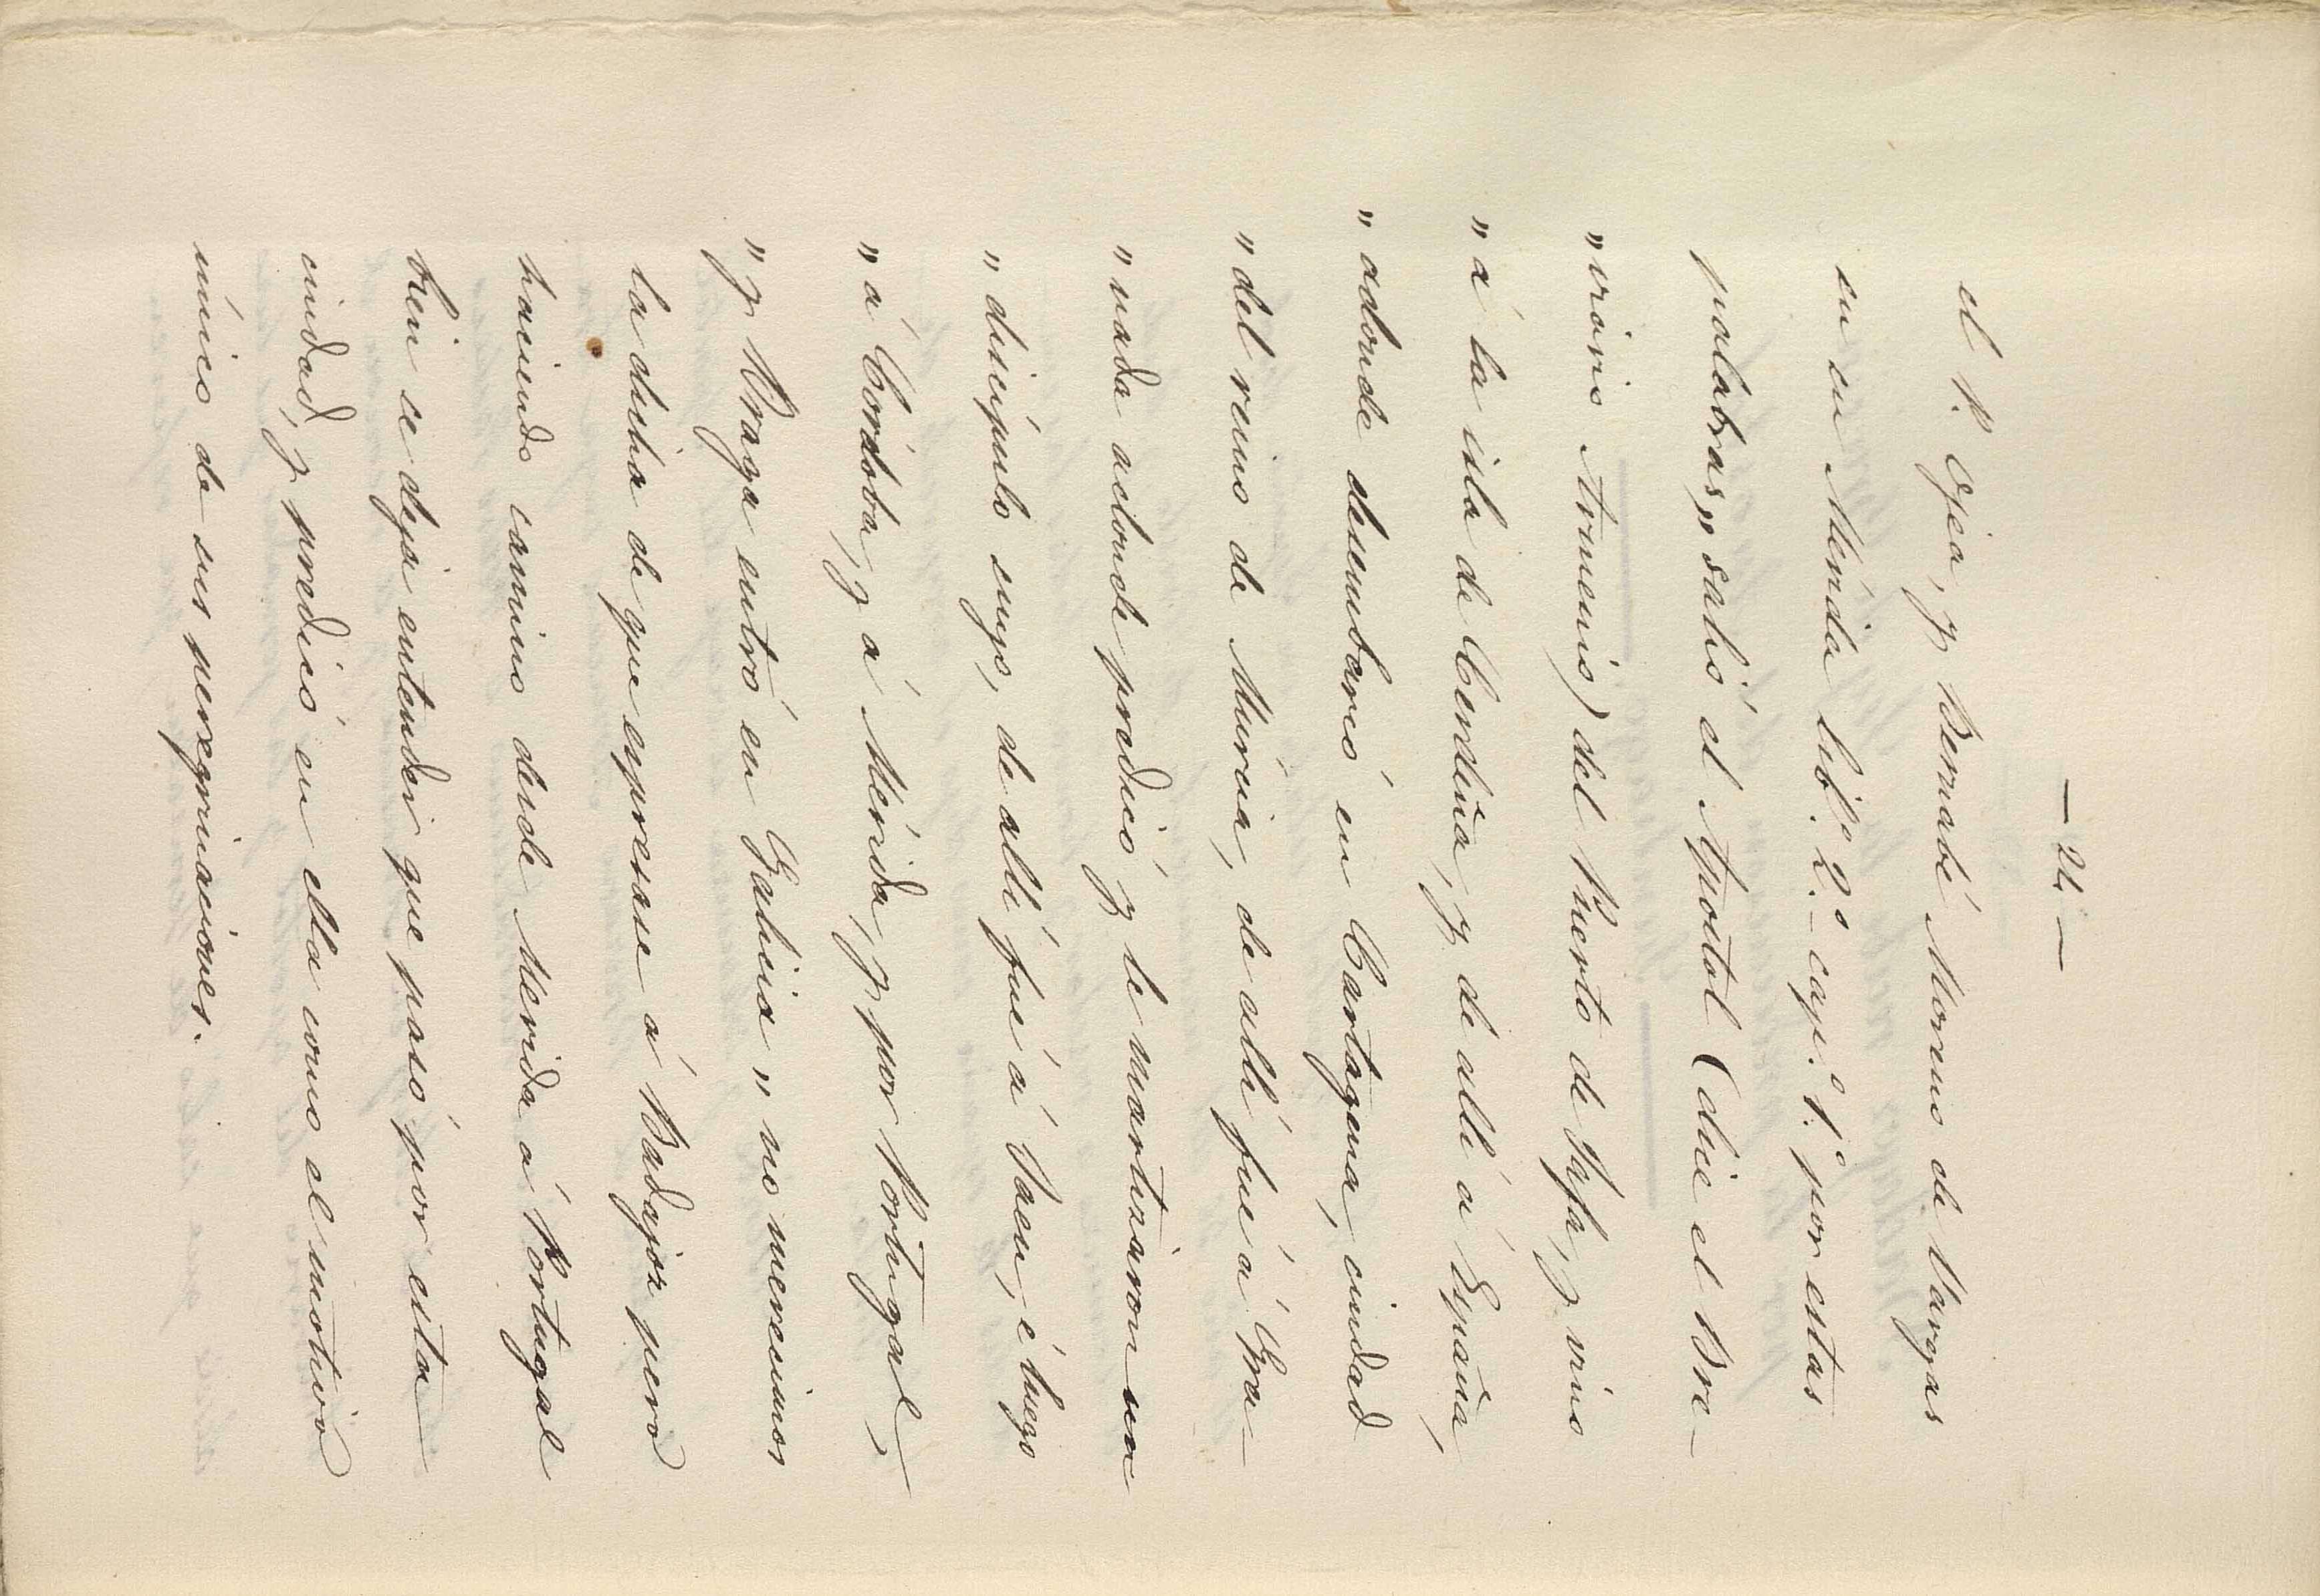 — 24 —
el P. Ojea, y Bernabé Moreno de Vargas
en su Mérida lib.º 2.º cap.º 1.º por estas
palabras „ salió el Apostol (dice el Bre-
„ viario Armenio) del Puerto de Jafa, y vino
„ á la isla de Cerdeña, y de alli á España,
„ adonde desembarcó en Cartagena, ciudad
„ del reino de Múrcia, de alli fue á Gra-
„ nada adonde predicó y le martirizaron un
„ discípulo suyo, de alli fue á Jaen, é luego
„ á Córdoba, y á Mérida, y por Portugal,
„ y Braga entró en Galicia „ no merecimos
la dicha de que espresase á Badajoz pero
haciendo camino desde Merida á Portugal
bien se deja entender que pasó por esta
ciudad, y predicó en ella como el motivo
único de sus peregrinaciones.